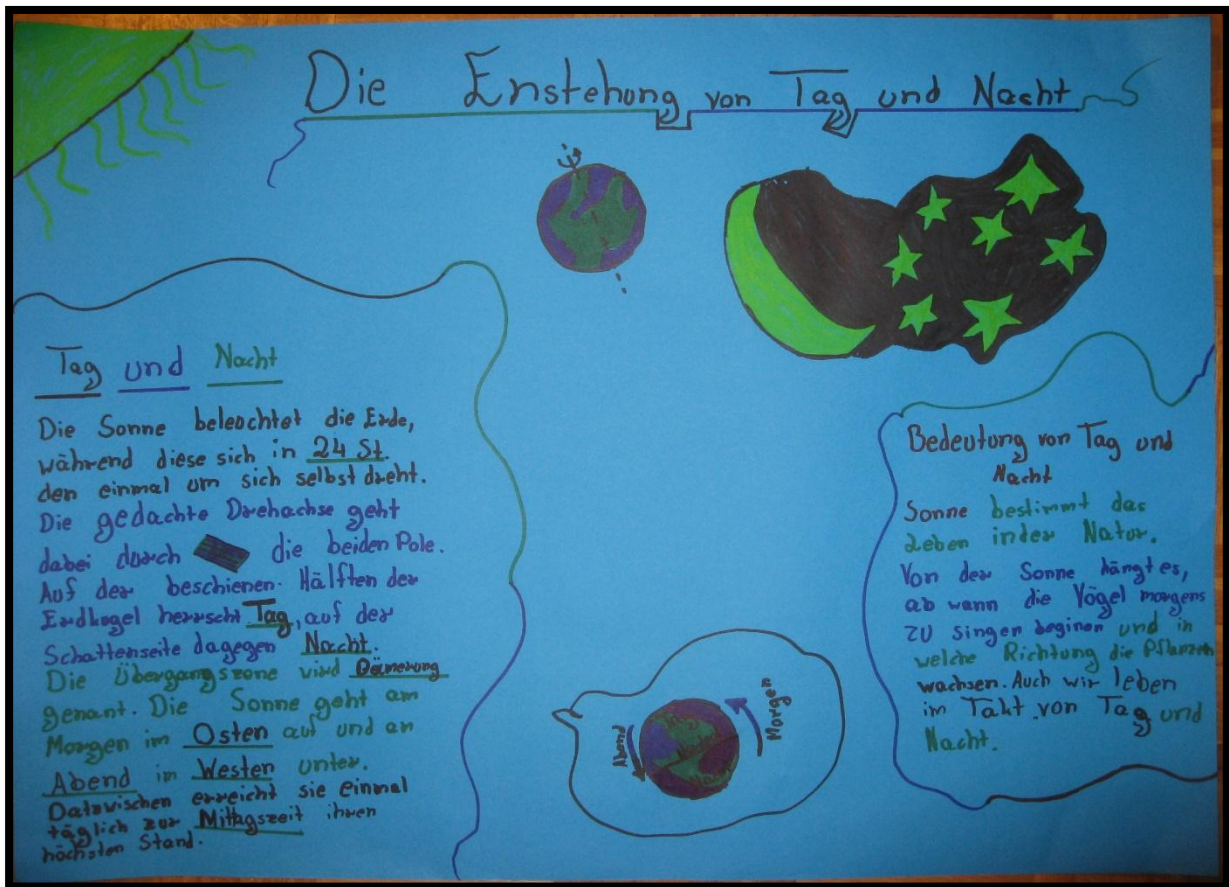 Die Enstehung von Tag und Nacht
Tag und Nacht
Die Sonne beleuchtet die Erde,
während diese sich in 24 St.
den einmal um sich selbst dreht.
Die gedachte Drehachse geht
dabei durch die beiden Pole.
Auf der beschienen Hälften der
Erdkugel herrscht Tag, auf der
Schattenseite dagegen Nacht.
Die Übergangszone wird Dämerung
genant. Die Sonne geht am
Morgen im Osten auf und an
Abend im Westen unter.
Datzwischen erreicht sie einmal
täglich zur Mittagszeit ihren
höchsten Stand.
Abend
Morgen
Bedeutung von Tag und
Nacht
Sonne bestimmt das
Leben in der Natur.
Von der Sonne hängt es,
ab wann die Vögel morgens
zu singen beginen und in
welche Richtung die Pflanzen
wachsen. Auch wir leben
im Takt von Tag und
Nacht.